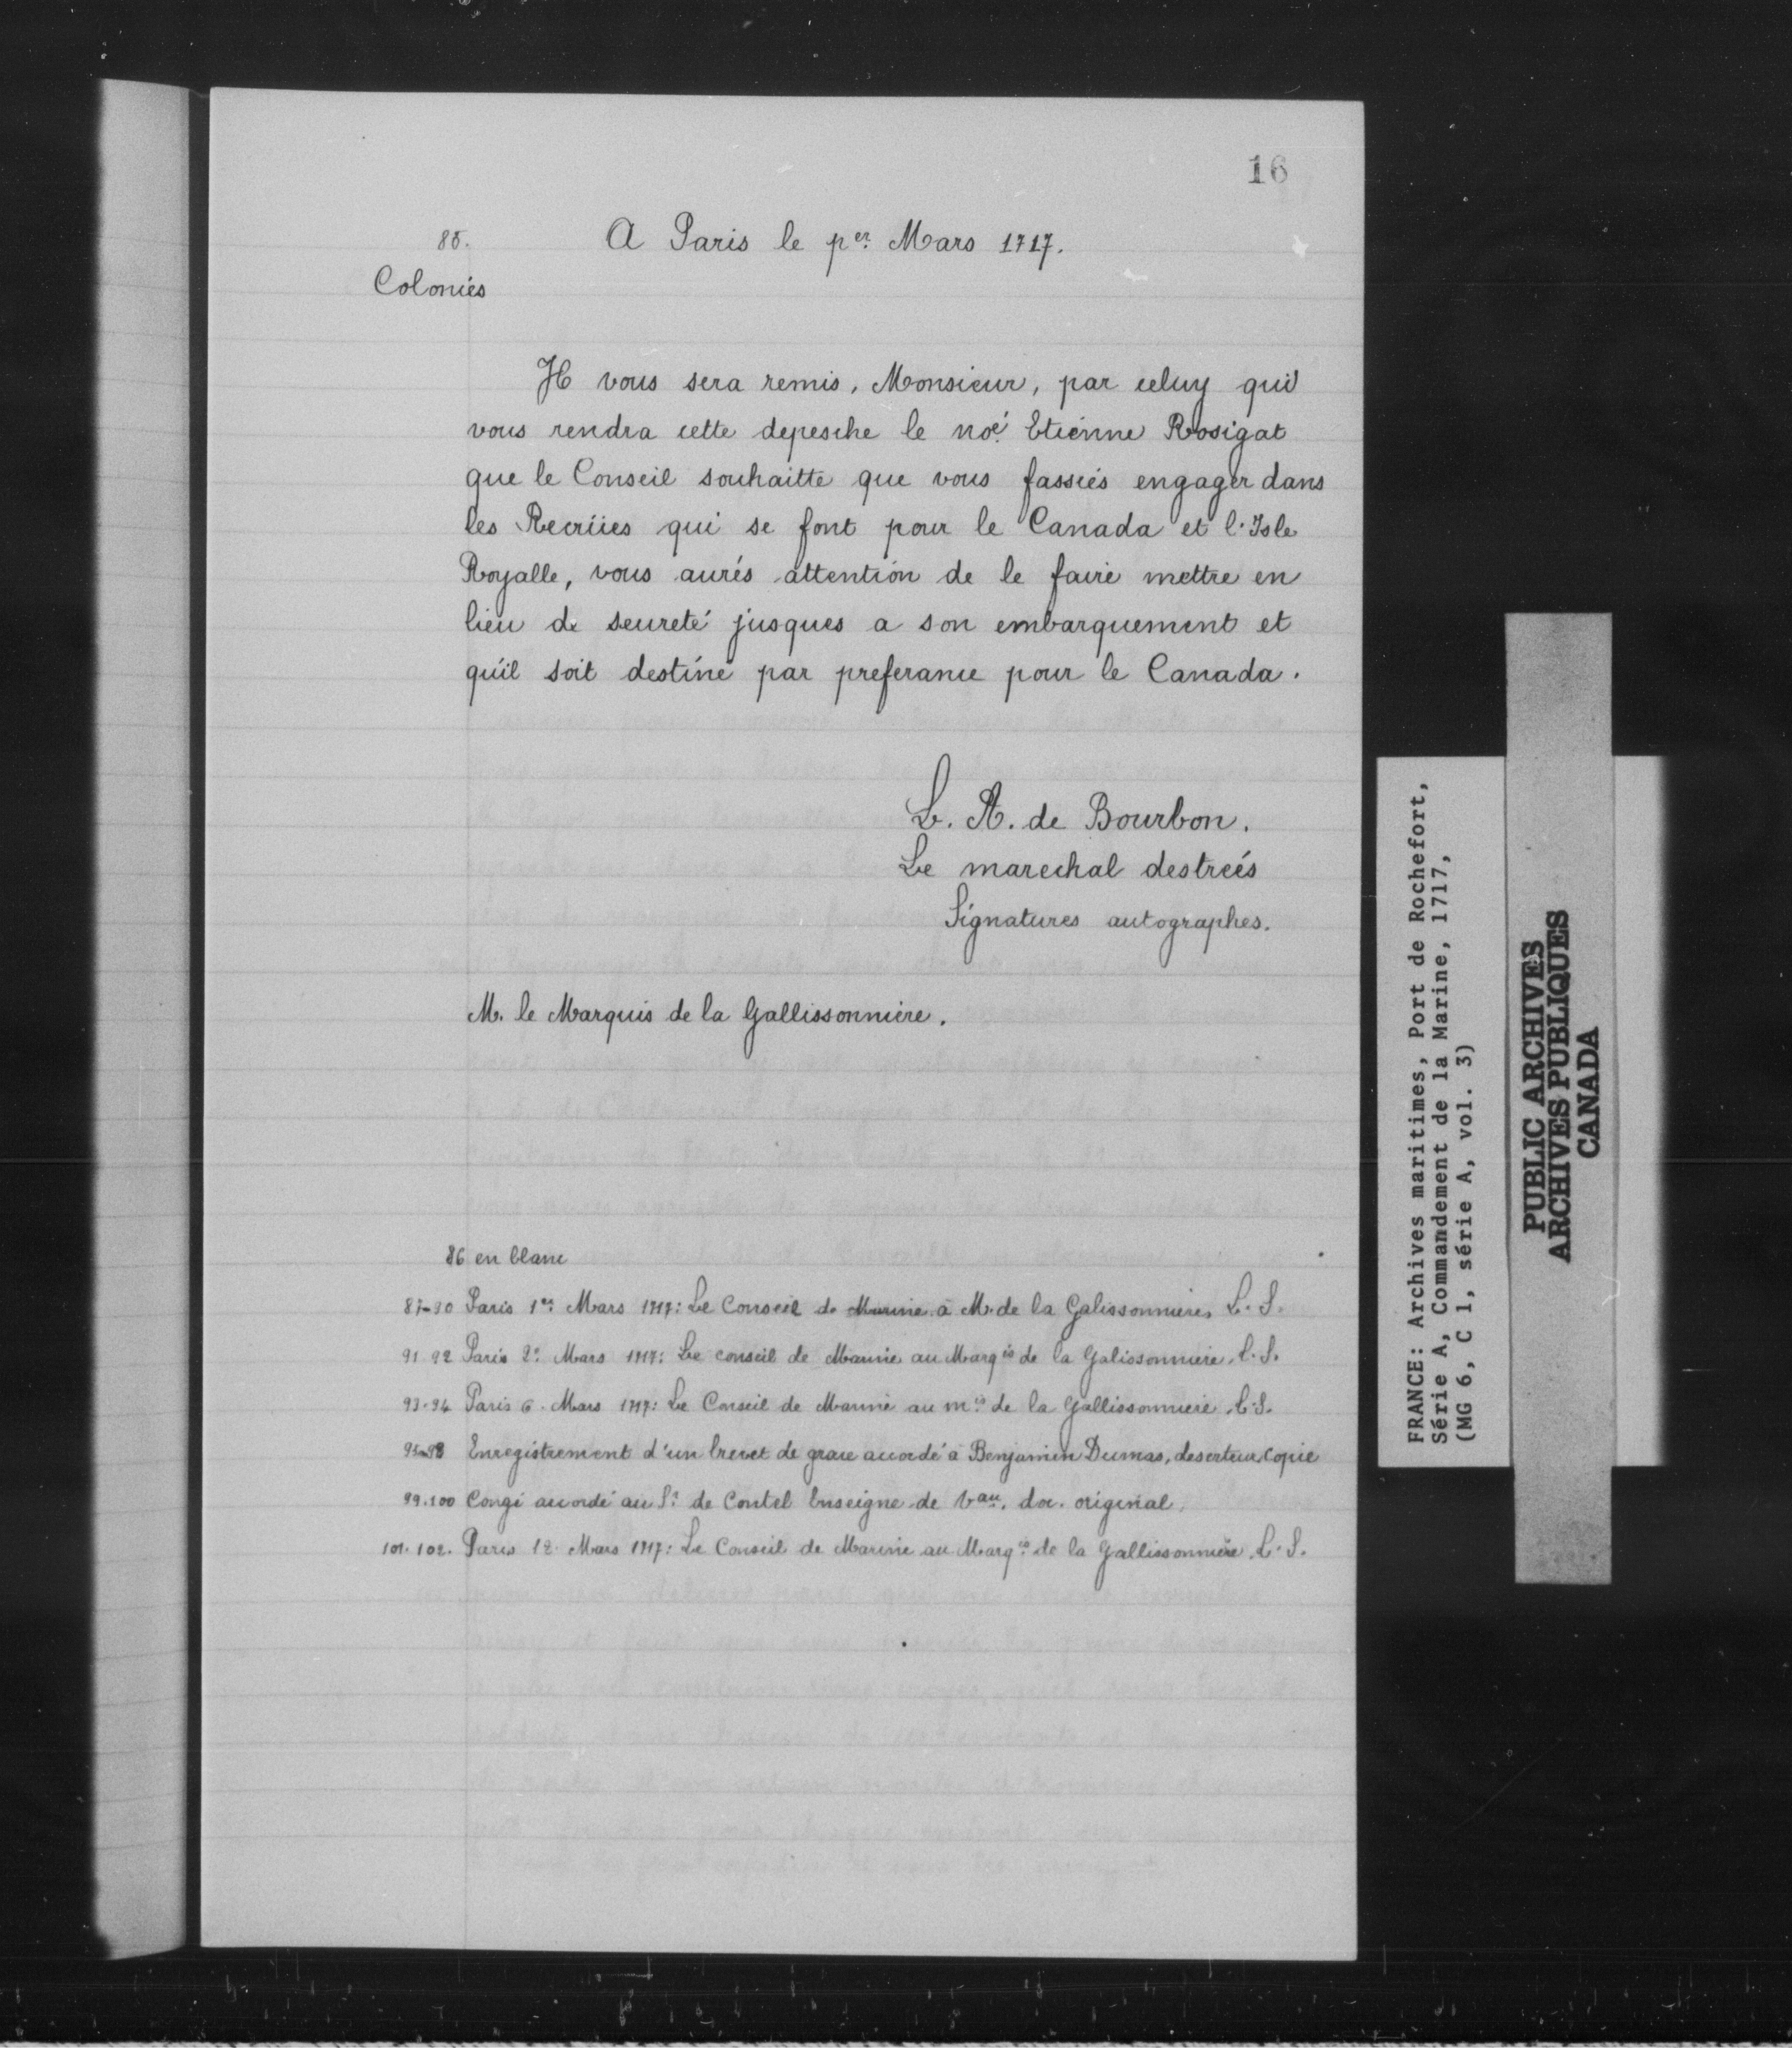 16
85. A Paris le per Mars 1717.
Colonies
Il vous sera remis, Monsieur, par celuy qui
vous rendra cette depesche le noé Etienne Rosigat
que le Conseil souhaitte que vous fassiés engager dans
les Recrües qui se font pour le Canada et l'Isle
Royalle, vous aurés attention de le faire mettre en
lieu de seureté jusques a son embarquement et
qu'il soit destiné par preferance pour le Canada.
L. A. de Bourbon.
Le marechal destreés
Signatures autographes.
M. le Marquis de la Gallissonniere.
86 en blanc
87-90 Paris 1er Mars 1717: Le Conseil de Marine à M. de la Galissonniere, L. S.
91 92 Paris 2e Mars 1717: Le conseil de Marine au Marqis de la Galissonniere, L. S.
93-94 Paris 6. Mars 1717: Le Conseil de Marine au mis de la Gallissonniere, L. S.
95-98 Enregistrement d'un brevet de grace accordé à Benjamin Dumas, deserteur, copie
99.100 Congé accordé au Sr de Contel Enseigne de Vau. doc. original.
101. 102. Paris 12 Mars 1717: Le Conseil de Marine au Marqis de la Gallissonniere, L. S.
FRANCE: Archives maritimes, Port de Rochefort,
Série A, Commandement de la Marine, 1717,
(MG 6, C 1, série A, vol. 3)
PUBLIC ARCHIVES
ARCHIVES PUBLIQUES
CANADA